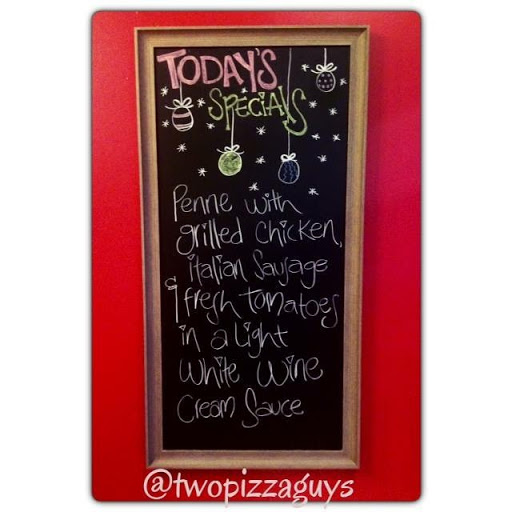 TODAY'S
SPECIALS
Penne with
grilled chicken,
italian Sausage
& fresh tomatoes
in a light
white wine
Cream Sauce
@twopizzaguys